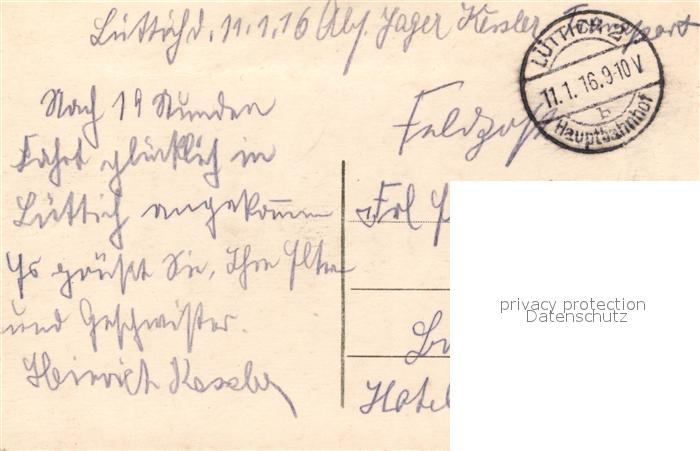 Lüttich d. 11.1.16 Abs. Jäger Kessler, Transport
LÜTTICH 2
11.1.16.9-10V
b
Hauptbahnhof
Nach 19 Stunden
Fahrt glücklich in
Lüttich angekommen
Es grüßt Sie, Ihre Eltern
und Geschwister.
Heinrich Kessler
Feldpost
Frl
Hotel
privacy protection
Datenschutz